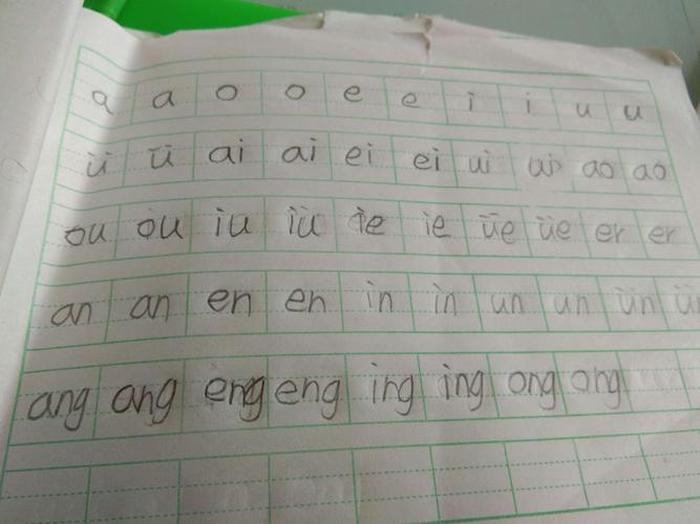 a a o o e e i i u u
ü ü ai ai ei ei ui ui ao ao
ou ou iu iu ie ie üe üe er er
an an en en in in un un ün ün
ang ang eng eng ing ing ong ong